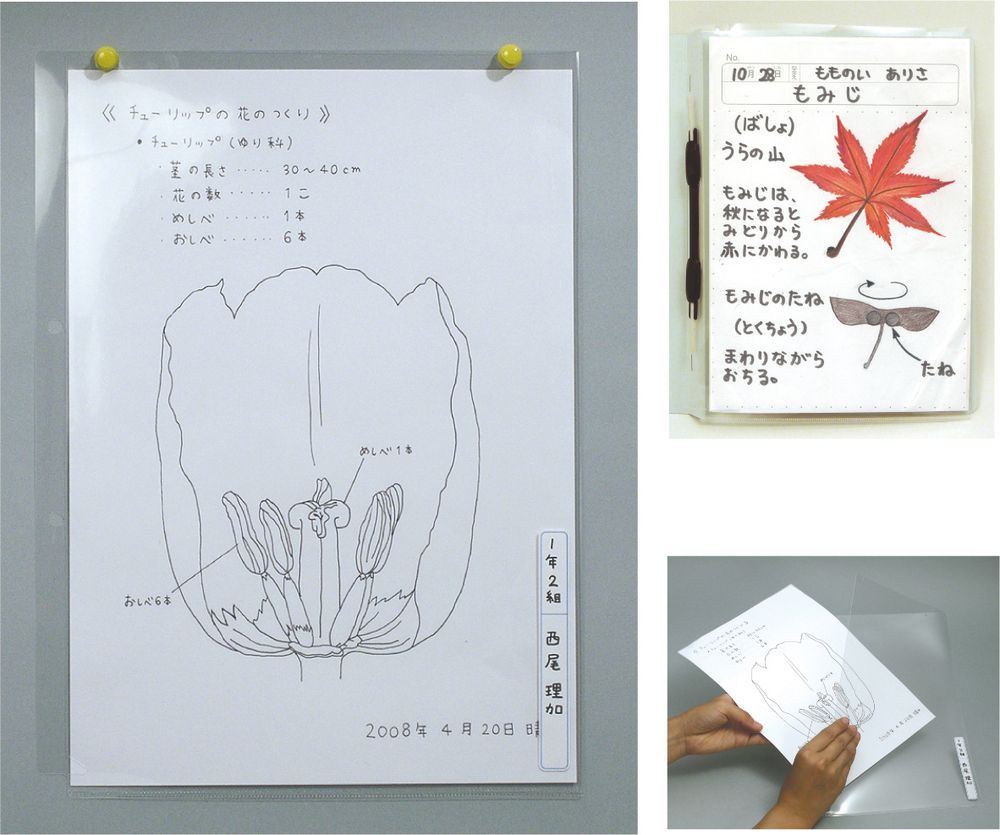 《 チューリップの 花 の つくり 》
• チューリップ (ゆり科)
・茎の長さ ‥‥‥ 30〜40cm
・花の数 ‥‥‥ 1こ
・めしべ ‥‥‥ 1本
・おしべ ‥‥‥ 6本
めしべ1本
おしべ6本
1年2組 西尾 理加
2008年 4月20日 晴
No.
10月 28日 もものい ありさ
もみじ
(ばしょ)
うらの山
もみじは、
秋になると
みどりから
赤にかわる。
もみじのたね
(とくちょう)
まわりながら
おちる。
たね